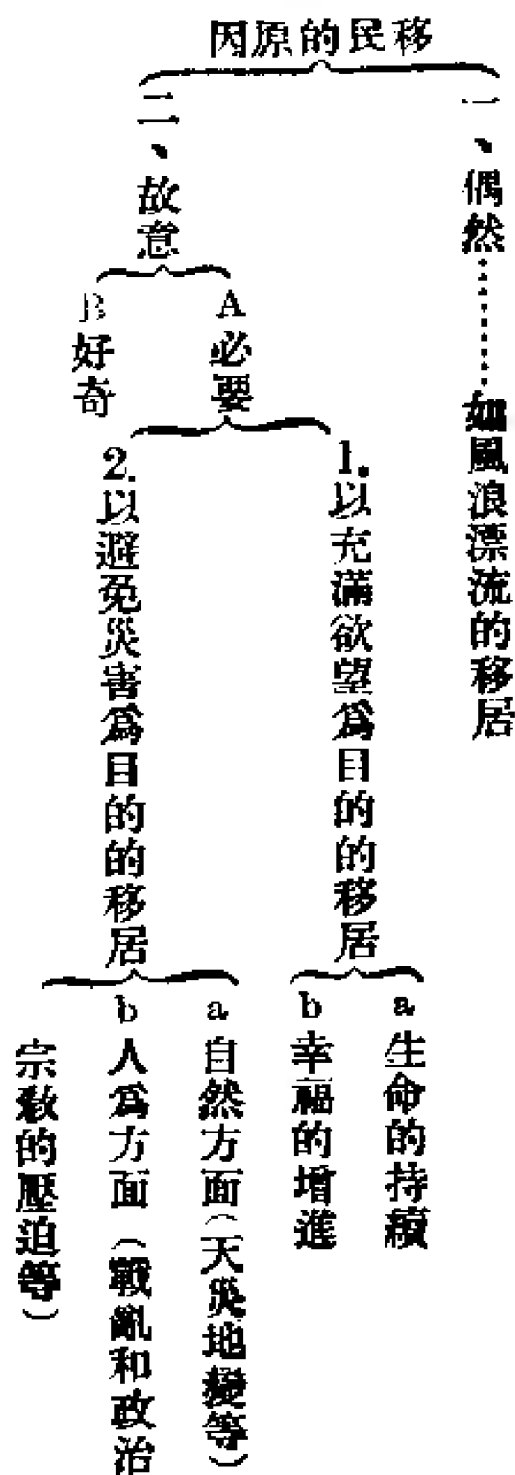 移民的原因
一、偶然………如風浪漂流的移居
二、故意
A必要
1.以充滿欲望爲目的的移居
a生命的持續
b幸福的增進
2.以避免災害爲目的的移居
a自然方面(天災地變等)
b人爲方面(戰亂和政治
宗教的壓迫等)
B好奇